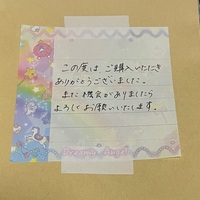 この度は、ご購入いただき
ありがとうございました。
また機会がありましたら
よろしくお願いいたします。